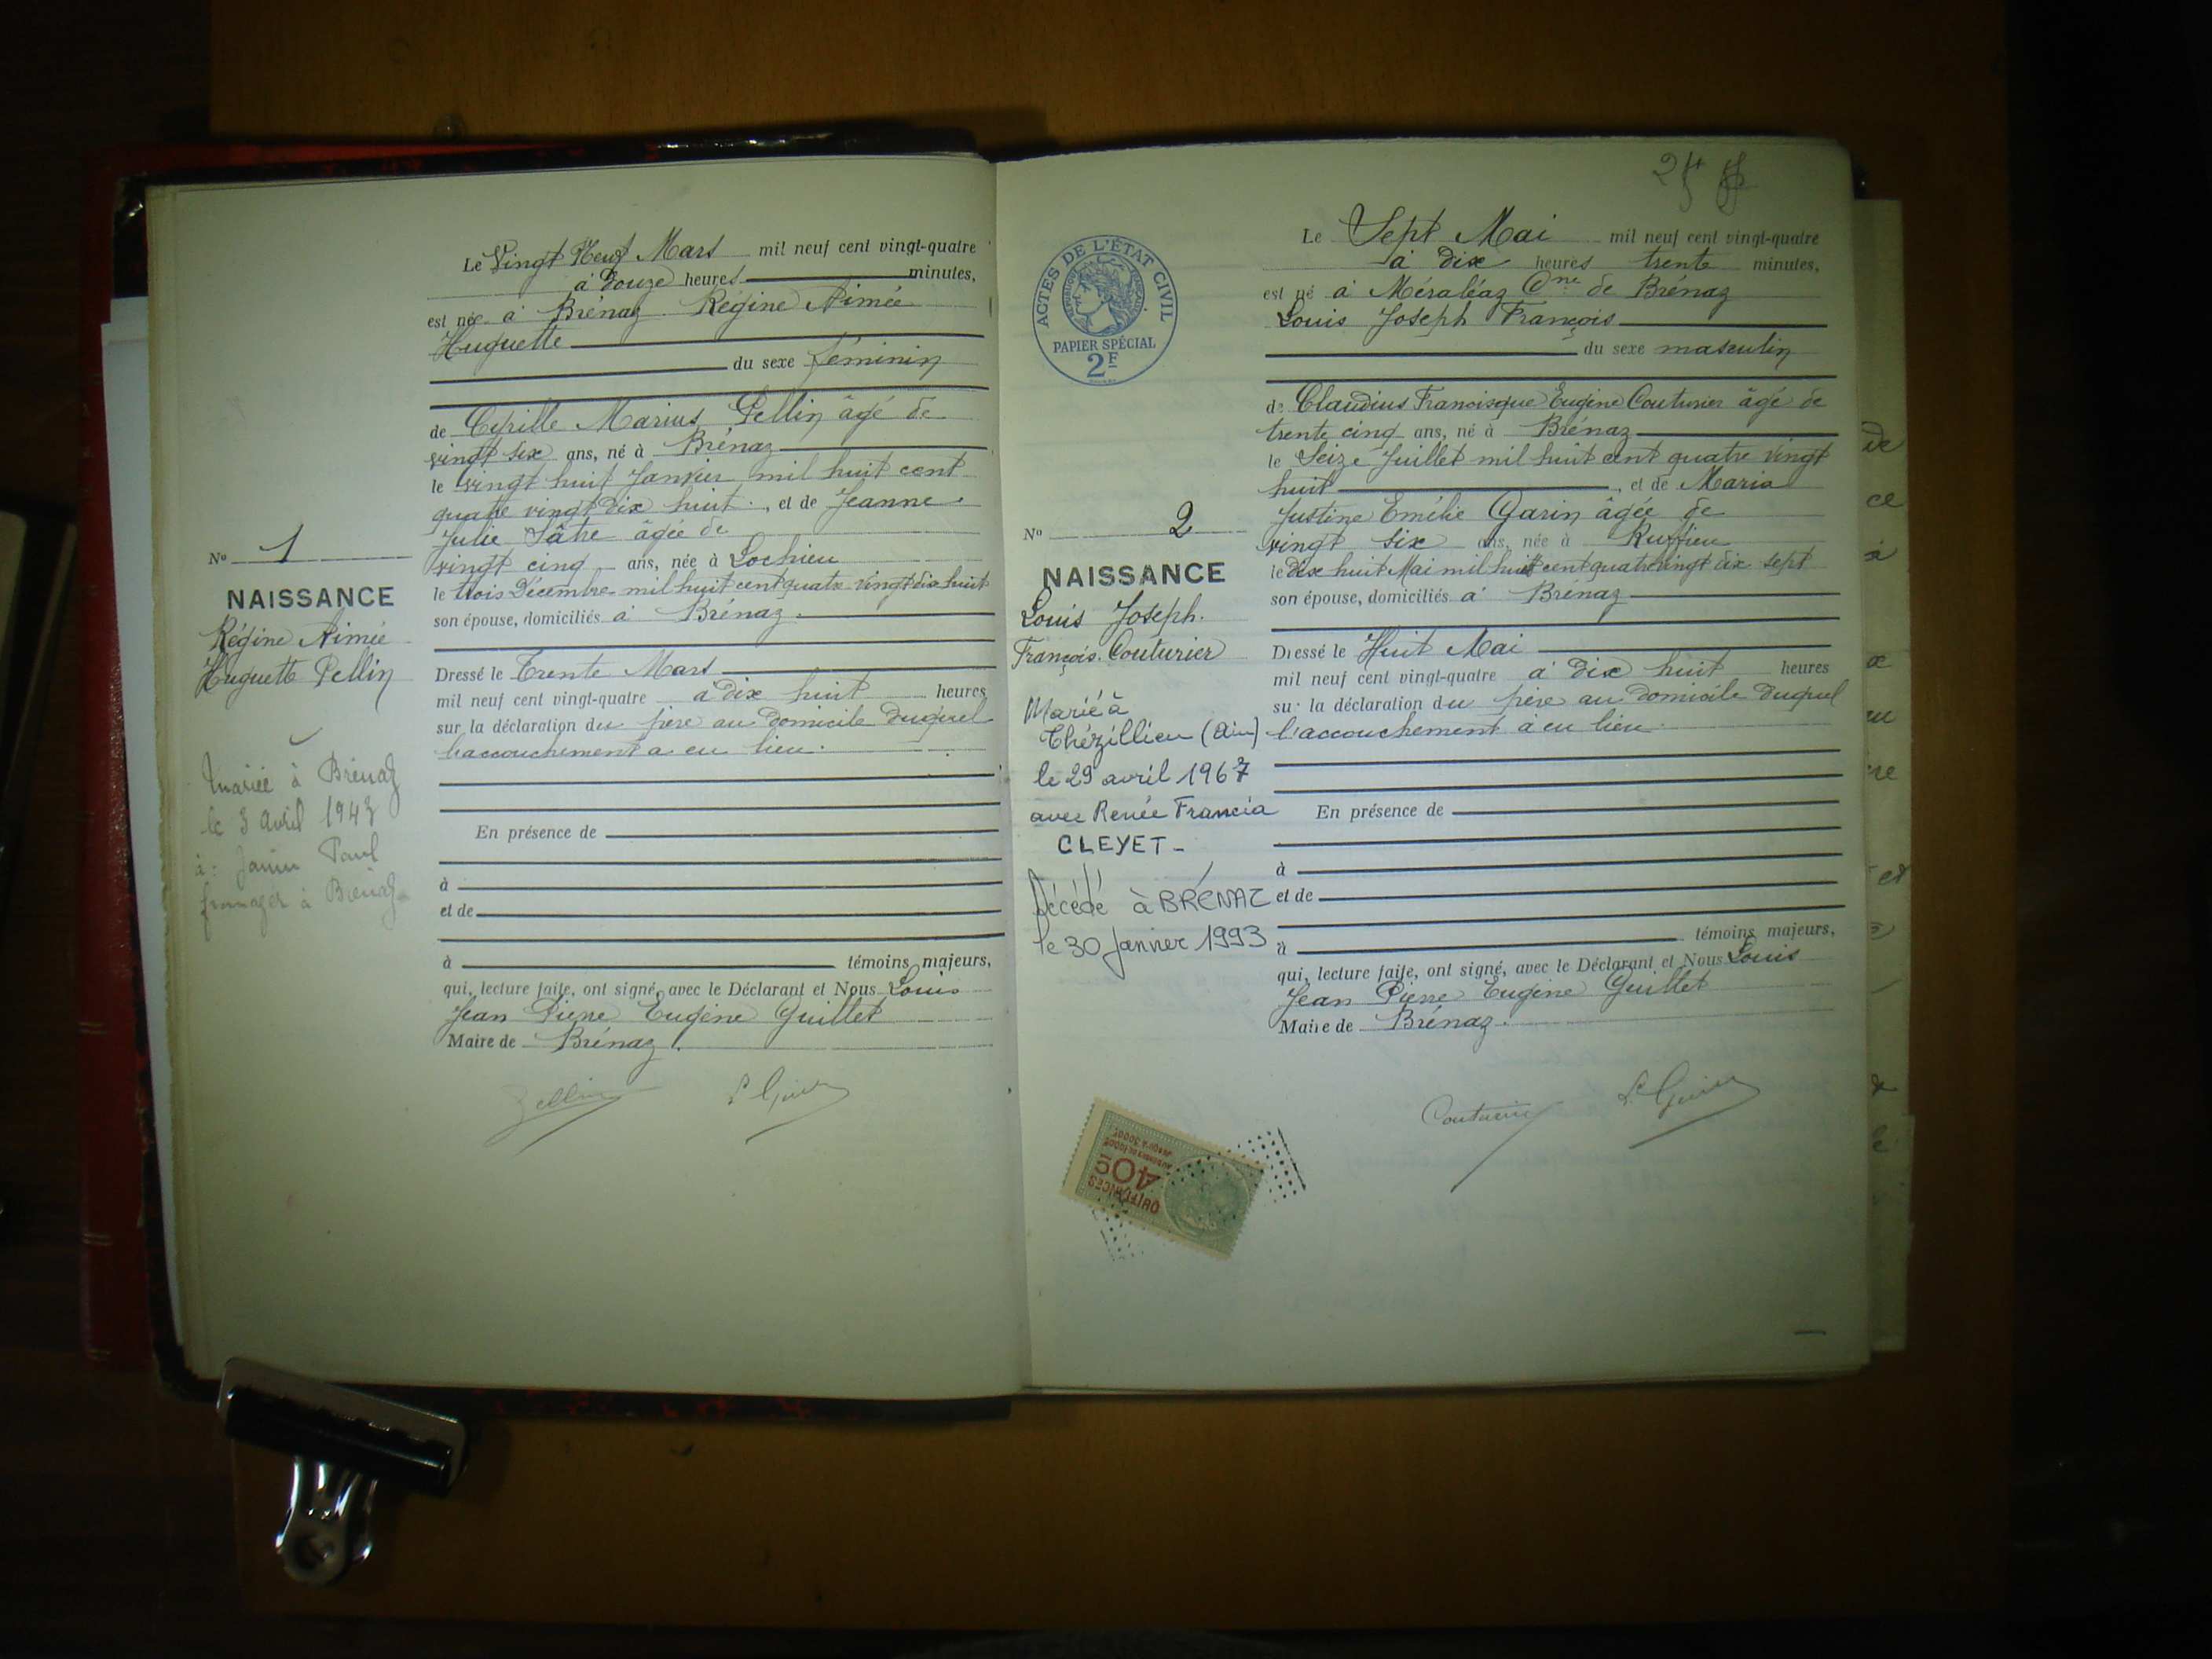 Le Vingt Neuf Mars mil neuf cent vingt-quatre
à Douze heures minutes,
est née à Brénaz Régine Aimée
Huguette
du sexe féminin
de Cyrille Marius Pellin âgé de
vingt six ans, né à Brénaz
le vingt huit Janvier mil huit cent
quatre vingt dix huit, et de Jeanne
Julie âgée de
vingt cinq ans, née à Lochieu
le trois Décembre mil huit cent quatre vingt dix huit
son épouse, domiciliés à Brénaz.
No 1
NAISSANCE
Régine Aimée
Huguette Pellin
Mariée à Brénaz
le 3 avril 1943
à : Janin Paul
fromager à Brénaz
Dressé le Trente Mars
mil neuf cent vingt-quatre à dix huit heures
sur la déclaration du père au domicile duquel
l'accouchement a eu lieu.
En présence de
à
et de
à témoins majeurs,
qui, lecture faite, ont signé, avec le Déclarant et Nous Louis
Jean Pierre Eugène Guillet
Maire de Brénaz.
Pellin
24
ACTES DE L'ÉTAT CIVIL
RÉPUBLIQUE FRANÇAISE
PAPIER SPÉCIAL
2F
Le Sept Mai mil neuf cent vingt-quatre
à dix heures trente minutes,
est né à Méraléaz Cne de Brénaz
Louis Joseph François
du sexe masculin
de Claudius Francisque Eugène Couturier âgé de
trente cinq ans, né à Brénaz
le Seize Juillet mil huit cent quatre vingt
huit, et de Maria
Justine Emélie Garin âgée de
vingt six ans, née à Ruffieu
le dix huit Mai mil huit cent quatre vingt dix sept
son épouse, domiciliés à Brénaz
No 2
NAISSANCE
Louis Joseph.
François. Couturier
Marié à
Thézillieu (Ain)
le 29 avril 1967
avec Renée Francia
CLEYET-
Décédé à BRÉNAZ
le 30 Janvier 1993
Dressé le Huit Mai
mil neuf cent vingt-quatre à dix huit heures
sur la déclaration du père au domicile duquel
l'accouchement à eu lieu.
En présence de
à
et de
à témoins majeurs,
qui, lecture faite, ont signé, avec le Déclarant et Nous Louis
Jean Pierre Eugène Guillet
Maire de Brénaz.
Couturier
QUITTANCES
40c